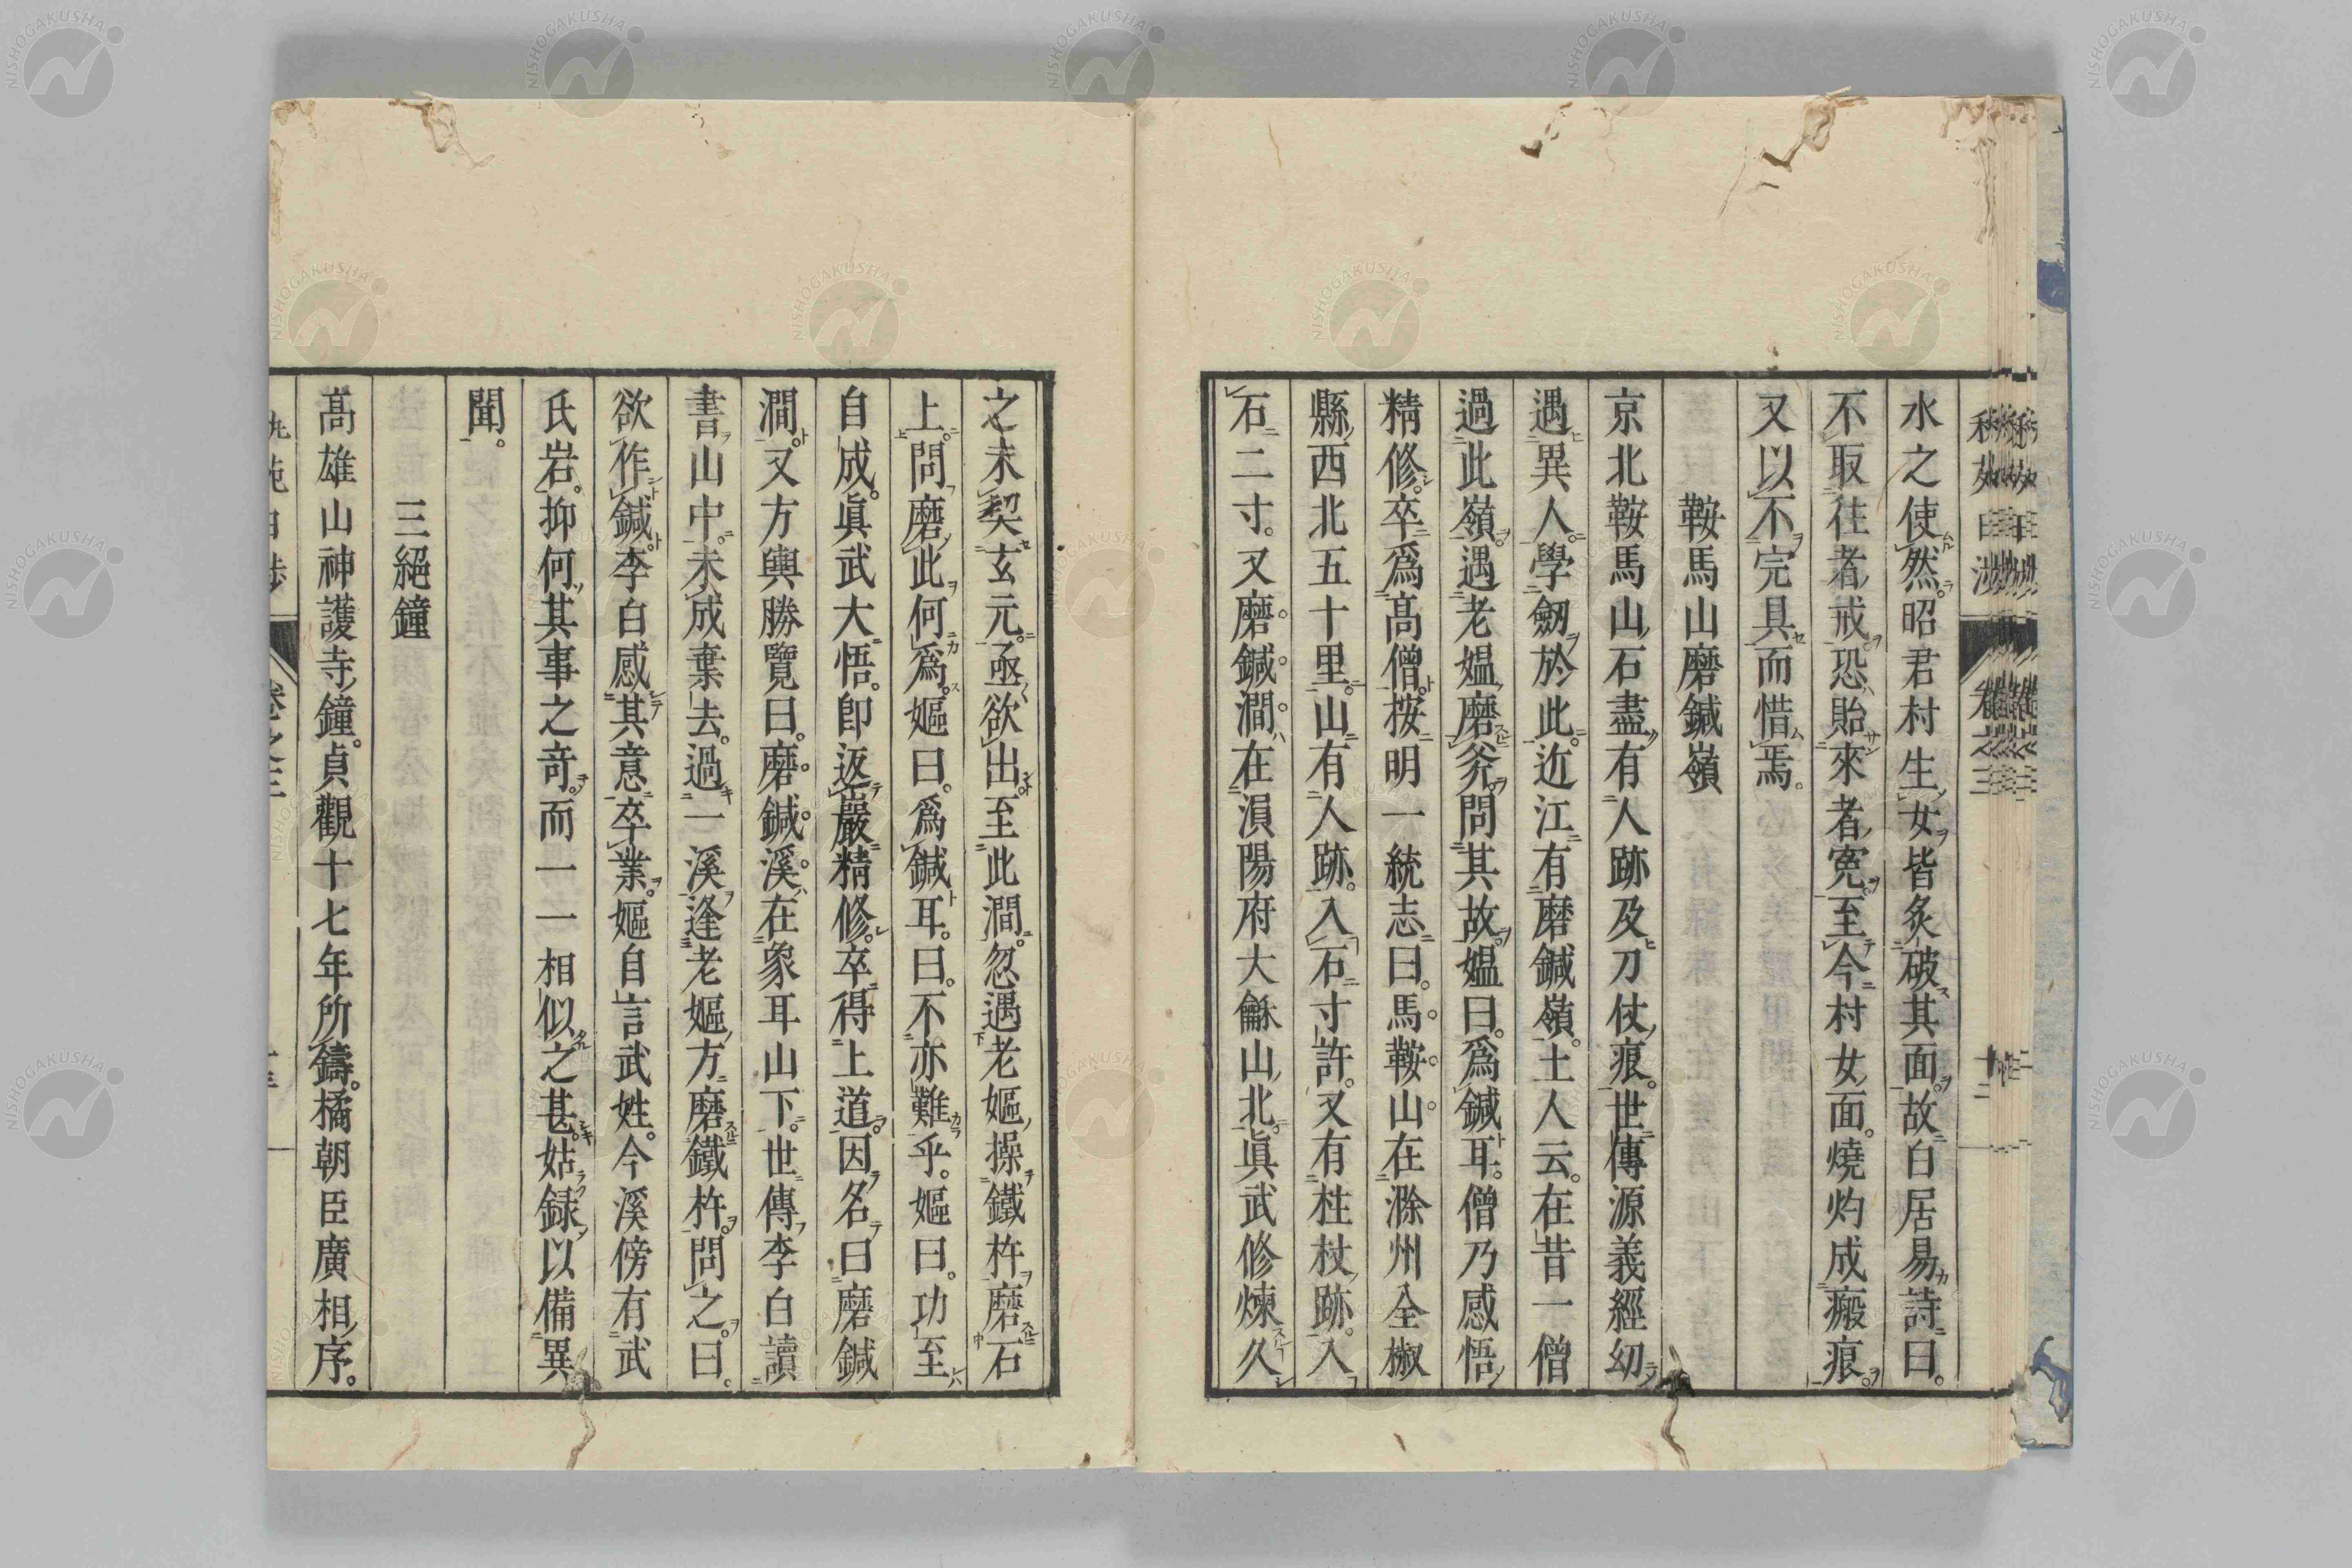 水之使然昭君村生女皆炙破其面故白居易詩曰。
不取往者戒恐貽來者寃至今村女面。燒灼成瘢痕。
又以不完具而惜焉。
鞍馬山磨鍼嶺
京北鞍馬山石盡有人跡及刀仗痕。世傳源義經幼
遇異人。學劒於此。近江有磨鍼嶺。土人云。在昔一僧
過此嶺。遇老媼磨斧。問其故。媼曰。爲鍼耳。僧乃感悟
精修。卒爲高僧。按明一統志曰。馬鞍山在滁州全椒
縣西北五十里。山有人跡。入石寸許。又有柱杖跡。入
石二寸。又磨鍼澗在溳陽府大龢山北。眞武修煉久
之未契玄元。亟欲出至此澗。忽遇老嫗操鐵杵磨石
上。問磨此何爲。嫗曰。爲鍼耳。曰。不亦難乎。嫗曰。功至
自成。眞武大悟。卽返巖精修。卒得上道。因名曰磨鍼
澗。又方輿勝覽曰。磨鍼溪在象耳山下。世傳李白讀
書山中。未成棄去。過一溪逢老嫗方磨鐵杵。問之。曰。
欲作鍼。李白感其意卒業。嫗自言武姓。今溪傍有武
氏岩。抑何其事之奇。而一一相似之甚。姑録以備異
聞。
三絕鐘
高雄山神護寺鐘。貞觀十七年所鑄。橘朝臣廣相序。